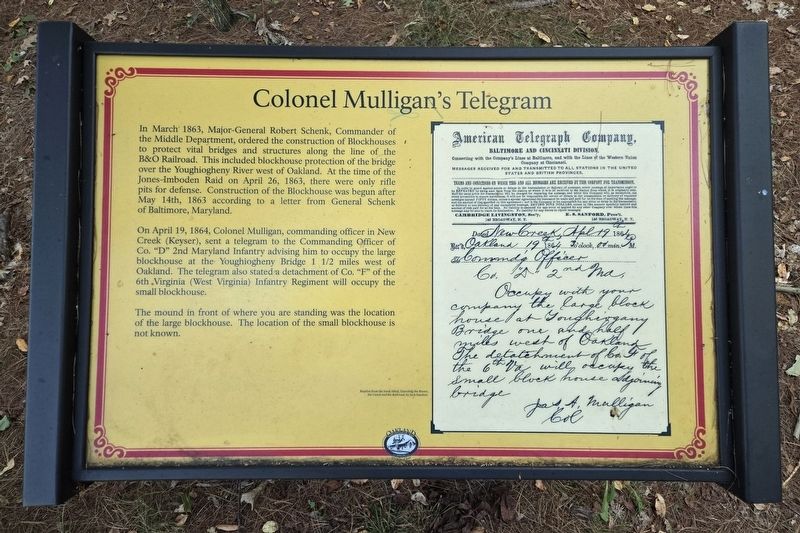 Colonel Mulligan's Telegram
In March 1863, Major-General Robert Schenk, Commander of
the Middle Department, ordered the construction of Blockhouses
to protect vital bridges and structures along the line of the
B&O Railroad. This included blockhouse protection of the bridge
over the Youghiogheny River west of Oakland. At the time of the
Jones-Imboden Raid on April 26, 1863, there were only rifle
pits for defense. Construction of the Blockhouse was begun after
May 14th, 1863 according to a letter from General Schenk
of Baltimore, Maryland.
On April 19, 1864, Colonel Mulligan, commanding officer in New
Creek (Keyser), sent a telegram to the Commanding Officer of
Co. "D" 2nd Maryland Infantry advising him to occupy the large
blockhouse at the Youghiogheny Bridge 1 1/2 miles west of
Oakland. The telegram also stated a detachment of Co. "F" of the
6th Virginia (West Virginia) Infantry Regiment will occupy the
small blockhouse.
The mound in front of where you are standing was the location
of the large blockhouse. The location of the small blockhouse is
not known.
American Telegraph Company,
BALTIMORE AND CINCINNATI DIVISION,
Connecting with the Company's Lines at Baltimore, and with the Lines of the Western Union
Company at Cincinnati.
MESSAGES RECEIVED FOR AND TRANSMITTED TO ALL STATIONS IN THE UNITED
STATES AND BRITISH PROVINCES.
CAMBRIDGE LIVINGSTON, Sec'y, E. S. SANFORD, Pres't,
145 BROADWAY, N. Y. 145 BROADWAY, N. Y.
New Creek, Apl 19th 1864
Oakland 19th 1864, o'clock, min. M.
To Commdg Officer
Co. "D" 2nd Md,
Occupy with your
company the large block
house at Youghiogany
Bridge one and half
miles west of Oakland
The detatchment of Co F of
the 6th Va will occupy the
small block house adjoining
bridge
Jas A. Mulligan
Col
OAKLAND